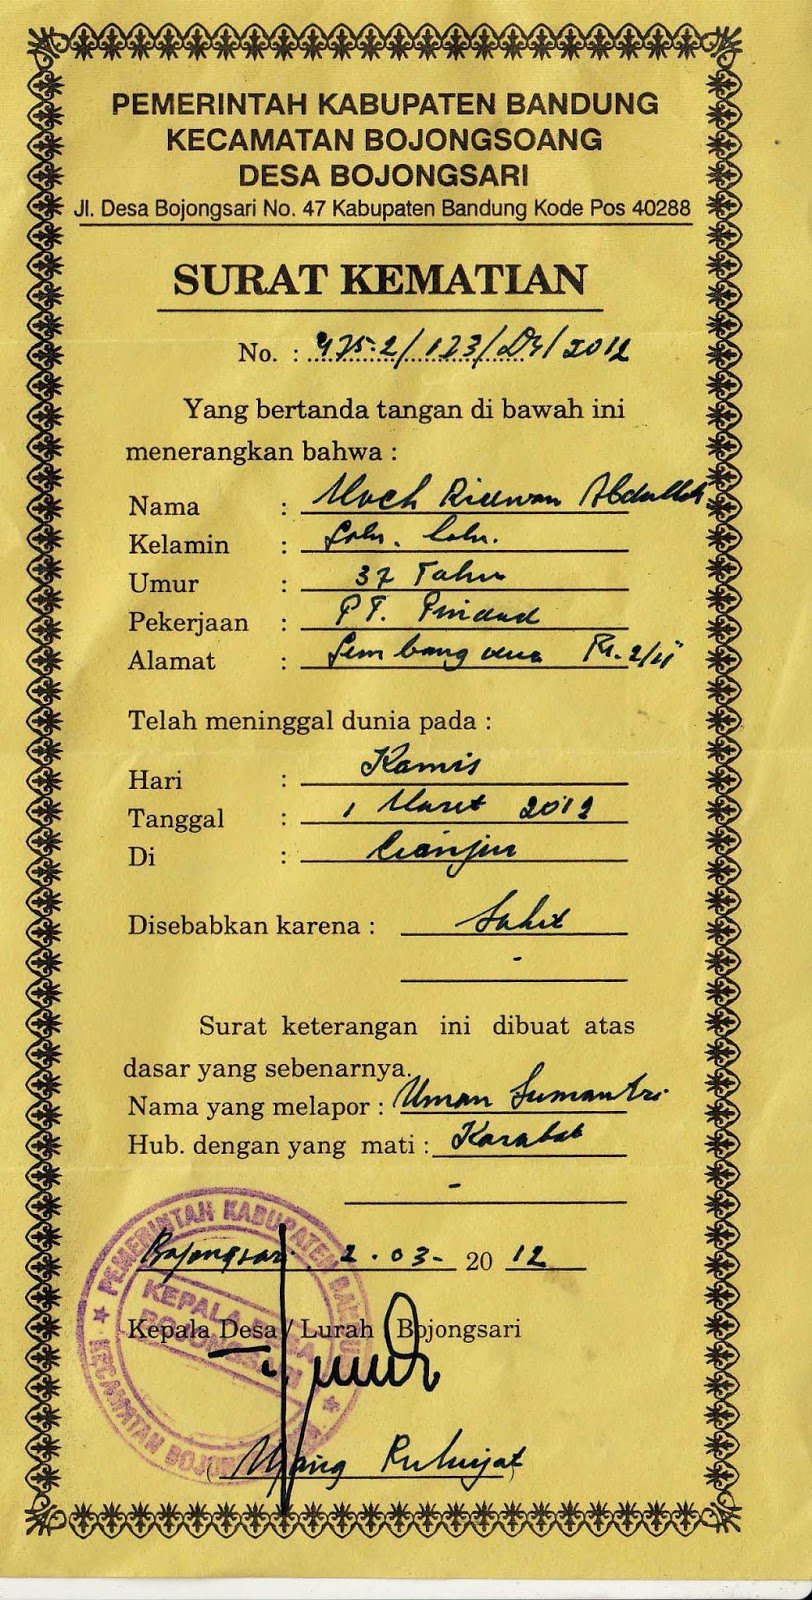 PEMERINTAH KABUPATEN BANDUNG
KECAMATAN BOJONGSOANG
DESA BOJONGSARI
Jl. Desa Bojongsari No. 47 Kabupaten Bandung Kode Pos 40288
SURAT KEMATIAN
No. : 475.2/123/Ds/2012
Yang bertanda tangan di bawah ini
menerangkan bahwa :
Nama : Moch Ridwan Abdullah
Kelamin : Laki. Laki.
Umur : 37 Tahun
Pekerjaan : PT. Pindad
Alamat :
Telah meninggal dunia pada :
Hari : Kamis
Tanggal : 1 Maret 2012
Di : Cianjur
Disebabkan karena : Sakit
-
Surat keterangan ini dibuat atas
dasar yang sebenarnya.
Nama yang melapor : Uman Sumantri
Hub. dengan yang mati : Karabat
-
Bojongsari 2.03- 20 12
Kepala Desa / Lurah Bojongsari
PEMERINTAH KABUPATEN BANDUNG
KEPALA DESA
BOJONGSARI
KECAMATAN BOJONGSOANG
( Ujang Ruhiyat )